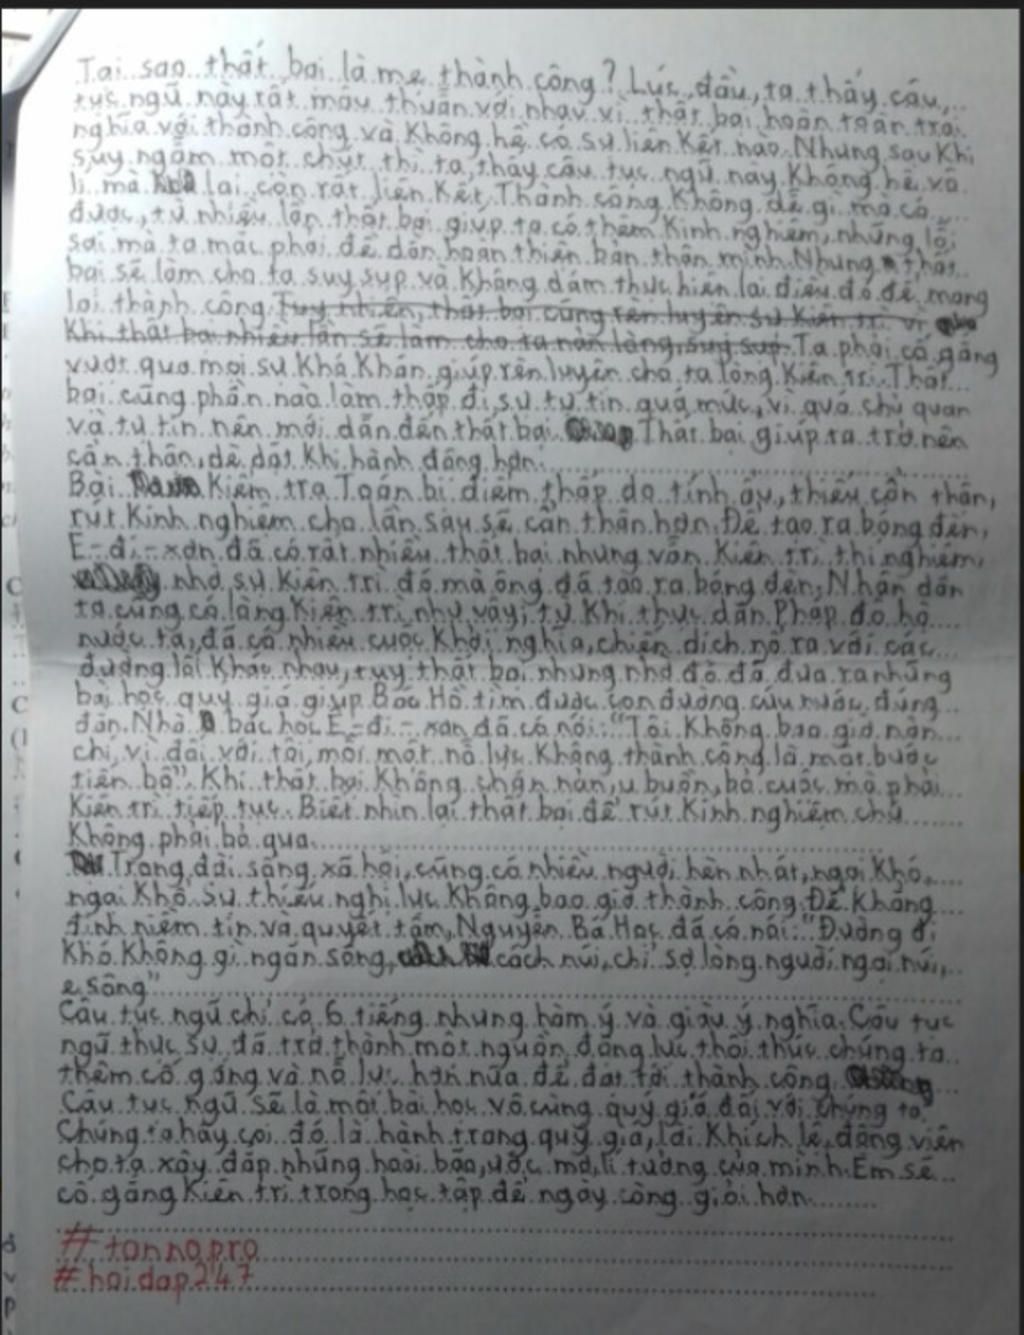 Tại sao thất bại là mẹ thành công? Lúc đầu, ta thấy câu
tục ngữ này rất mâu thuẫn với nhau vì thất bại hoàn toàn trái
nghĩa với thành công và không hề có sự liên kết nào. Nhưng sau khi
suy ngẫm một chút thì ta thấy câu tục ngữ này không hề vô
lí mà lại còn rất liên kết. Thành công không dễ gì mà có
được, từ nhiều lần thất bại giúp ta có thêm kinh nghiệm, những lỗi
sai mà ta mắc phải để dần hoàn thiện bản thân mình. Nhưng thất
bại sẽ làm cho ta suy sụp và không dám thực hiện lại điều đó để mang
lại thành công. Tuy nhiên, thất bại cũng rèn luyện sự kiên trì vì
khi thất bại nhiều lần sẽ làm cho ta nản lòng, suy sụp. Ta phải cố gắng
vượt qua mọi sự khó khăn giúp rèn luyện cho ta lòng kiên trì. Thất
bại cũng phần nào làm thấp đi sự tự tin quá mức, vì quá chủ quan
và tự tin nên mới dẫn đến thất bại. Thất bại giúp ta trở nên
cẩn thận, dè dặt khi hành động hơn.
Bài kiểm tra Toán bị điểm thấp do tính ẩu, thiếu cẩn thận,
rút kinh nghiệm cho lần sau sẽ cẩn thận hơn. Để tạo ra bóng đèn,
Ê-đi-xơn đã có rất nhiều thất bại nhưng vẫn kiên trì thí nghiệm,
nhờ sự kiên trì đó mà ông đã tạo ra bóng đèn. Nhân dân
ta cũng có lòng kiên trì như vậy, từ khi thực dân Pháp đô hộ
nước ta, đã có nhiều cuộc khởi nghĩa, chiến dịch nổ ra với các
đường lối khác nhau, tuy thất bại nhưng nhờ đó đã đưa ra những
bài học quý giá giúp Bác Hồ tìm được con đường cứu nước đúng
đắn. Nhà bác học Ê-đi-xơn đã có nói: "Tôi không bao giờ nản
chí, vì đối với tôi, mỗi một nỗ lực không thành công là một bước
tiến bộ". Khi thất bại không chán nản, u buồn, bỏ cuộc mà phải
kiên trì tiếp tục. Biết nhìn lại thất bại để rút kinh nghiệm chứ
không phải bỏ qua.
Trong đời sống xã hội, cũng có nhiều người hèn nhát, ngại khó,
ngại khổ. Sự thiếu nghị lực không bao giờ thành công. Để khẳng
định niềm tin và quyết tâm, Nguyễn Bá Học đã có nói: "Đường đi
khó không gì ngăn sông, cách núi, chỉ sợ lòng người ngại núi,
e sông"
Câu tục ngữ chỉ có 6 tiếng nhưng hàm ý và giàu ý nghĩa. Câu tục
ngữ thực sự đã trở thành một nguồn động lực thôi thúc chúng ta
thêm cố gắng và nỗ lực hơn nữa để đạt tới thành công.
Câu tục ngữ sẽ là một bài học vô cùng quý giá đối với chúng ta.
Chúng ta hãy coi đó là hành trang quý giá, lời khích lệ, động viên
cho ta xây đắp những hoài bão, ước mơ, lí tưởng của mình. Em sẽ
cố gắng kiên trì trong học tập để ngày càng giỏi hơn.
#tonnopro
#hoidap247